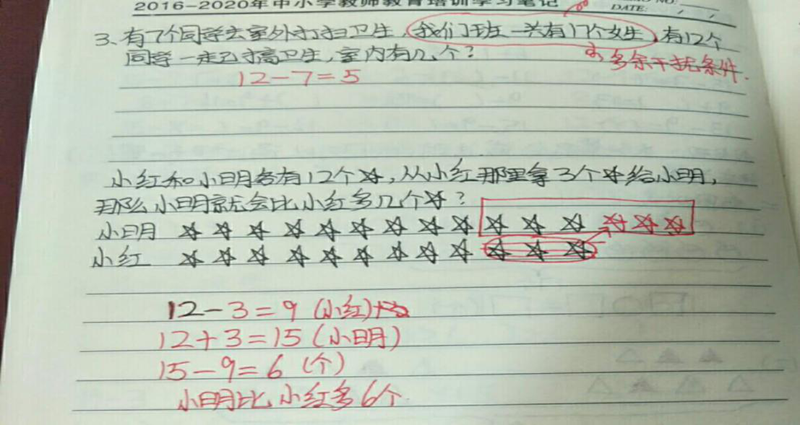 2016-2020年中小学教师教育培训学习笔记
DATE:
3、有7个同学去室外打扫卫生,我们班一共有17个女生,有12个
同学一起打扫卫生,室内有几个?
多余干扰条件.
12-7=5
小红和小明各有12个☆,从小红那里拿3个☆给小明,
那么小明就会比小红多几个☆?
小明 ☆☆☆☆☆☆☆☆☆☆☆☆☆☆☆
小红 ☆☆☆☆☆☆☆☆☆☆☆☆
12-3=9(小红)
12+3=15(小明)
15-9=6(个)
小明比小红多6个